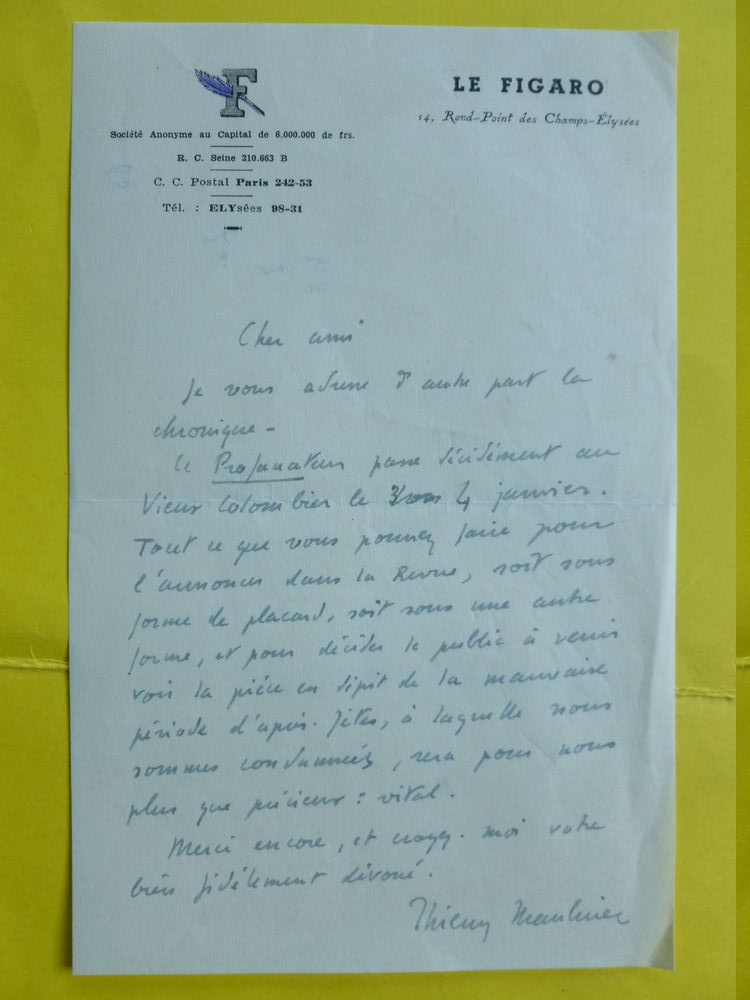 F
Société Anonyme au Capital de 6.000.000 de frs.
R. C. Seine 210.663 B
C. C. Postal Paris 242-53
Tél. : ELYsées 98-31
LE FIGARO
14, Rond-Point des Champs-Élysées
Cher ami
Je vous adresse d'autre part la
chronique -
Le Profanateur passe décidément au
Vieux Colombier le 4 janvier.
Tout ce que vous pourrez faire pour
l'annoncer dans la Revue, soit sous
forme de placard, soit sous une autre
forme, et pour décider le public à venir
voir la pièce en dépit de la mauvaise
période d'après-fêtes, à laquelle nous
sommes condamnés, sera pour nous
plus que précieux : vital.
Merci encore, et croyez-moi votre
bien fidèlement dévoué.
Thierry Maulnier